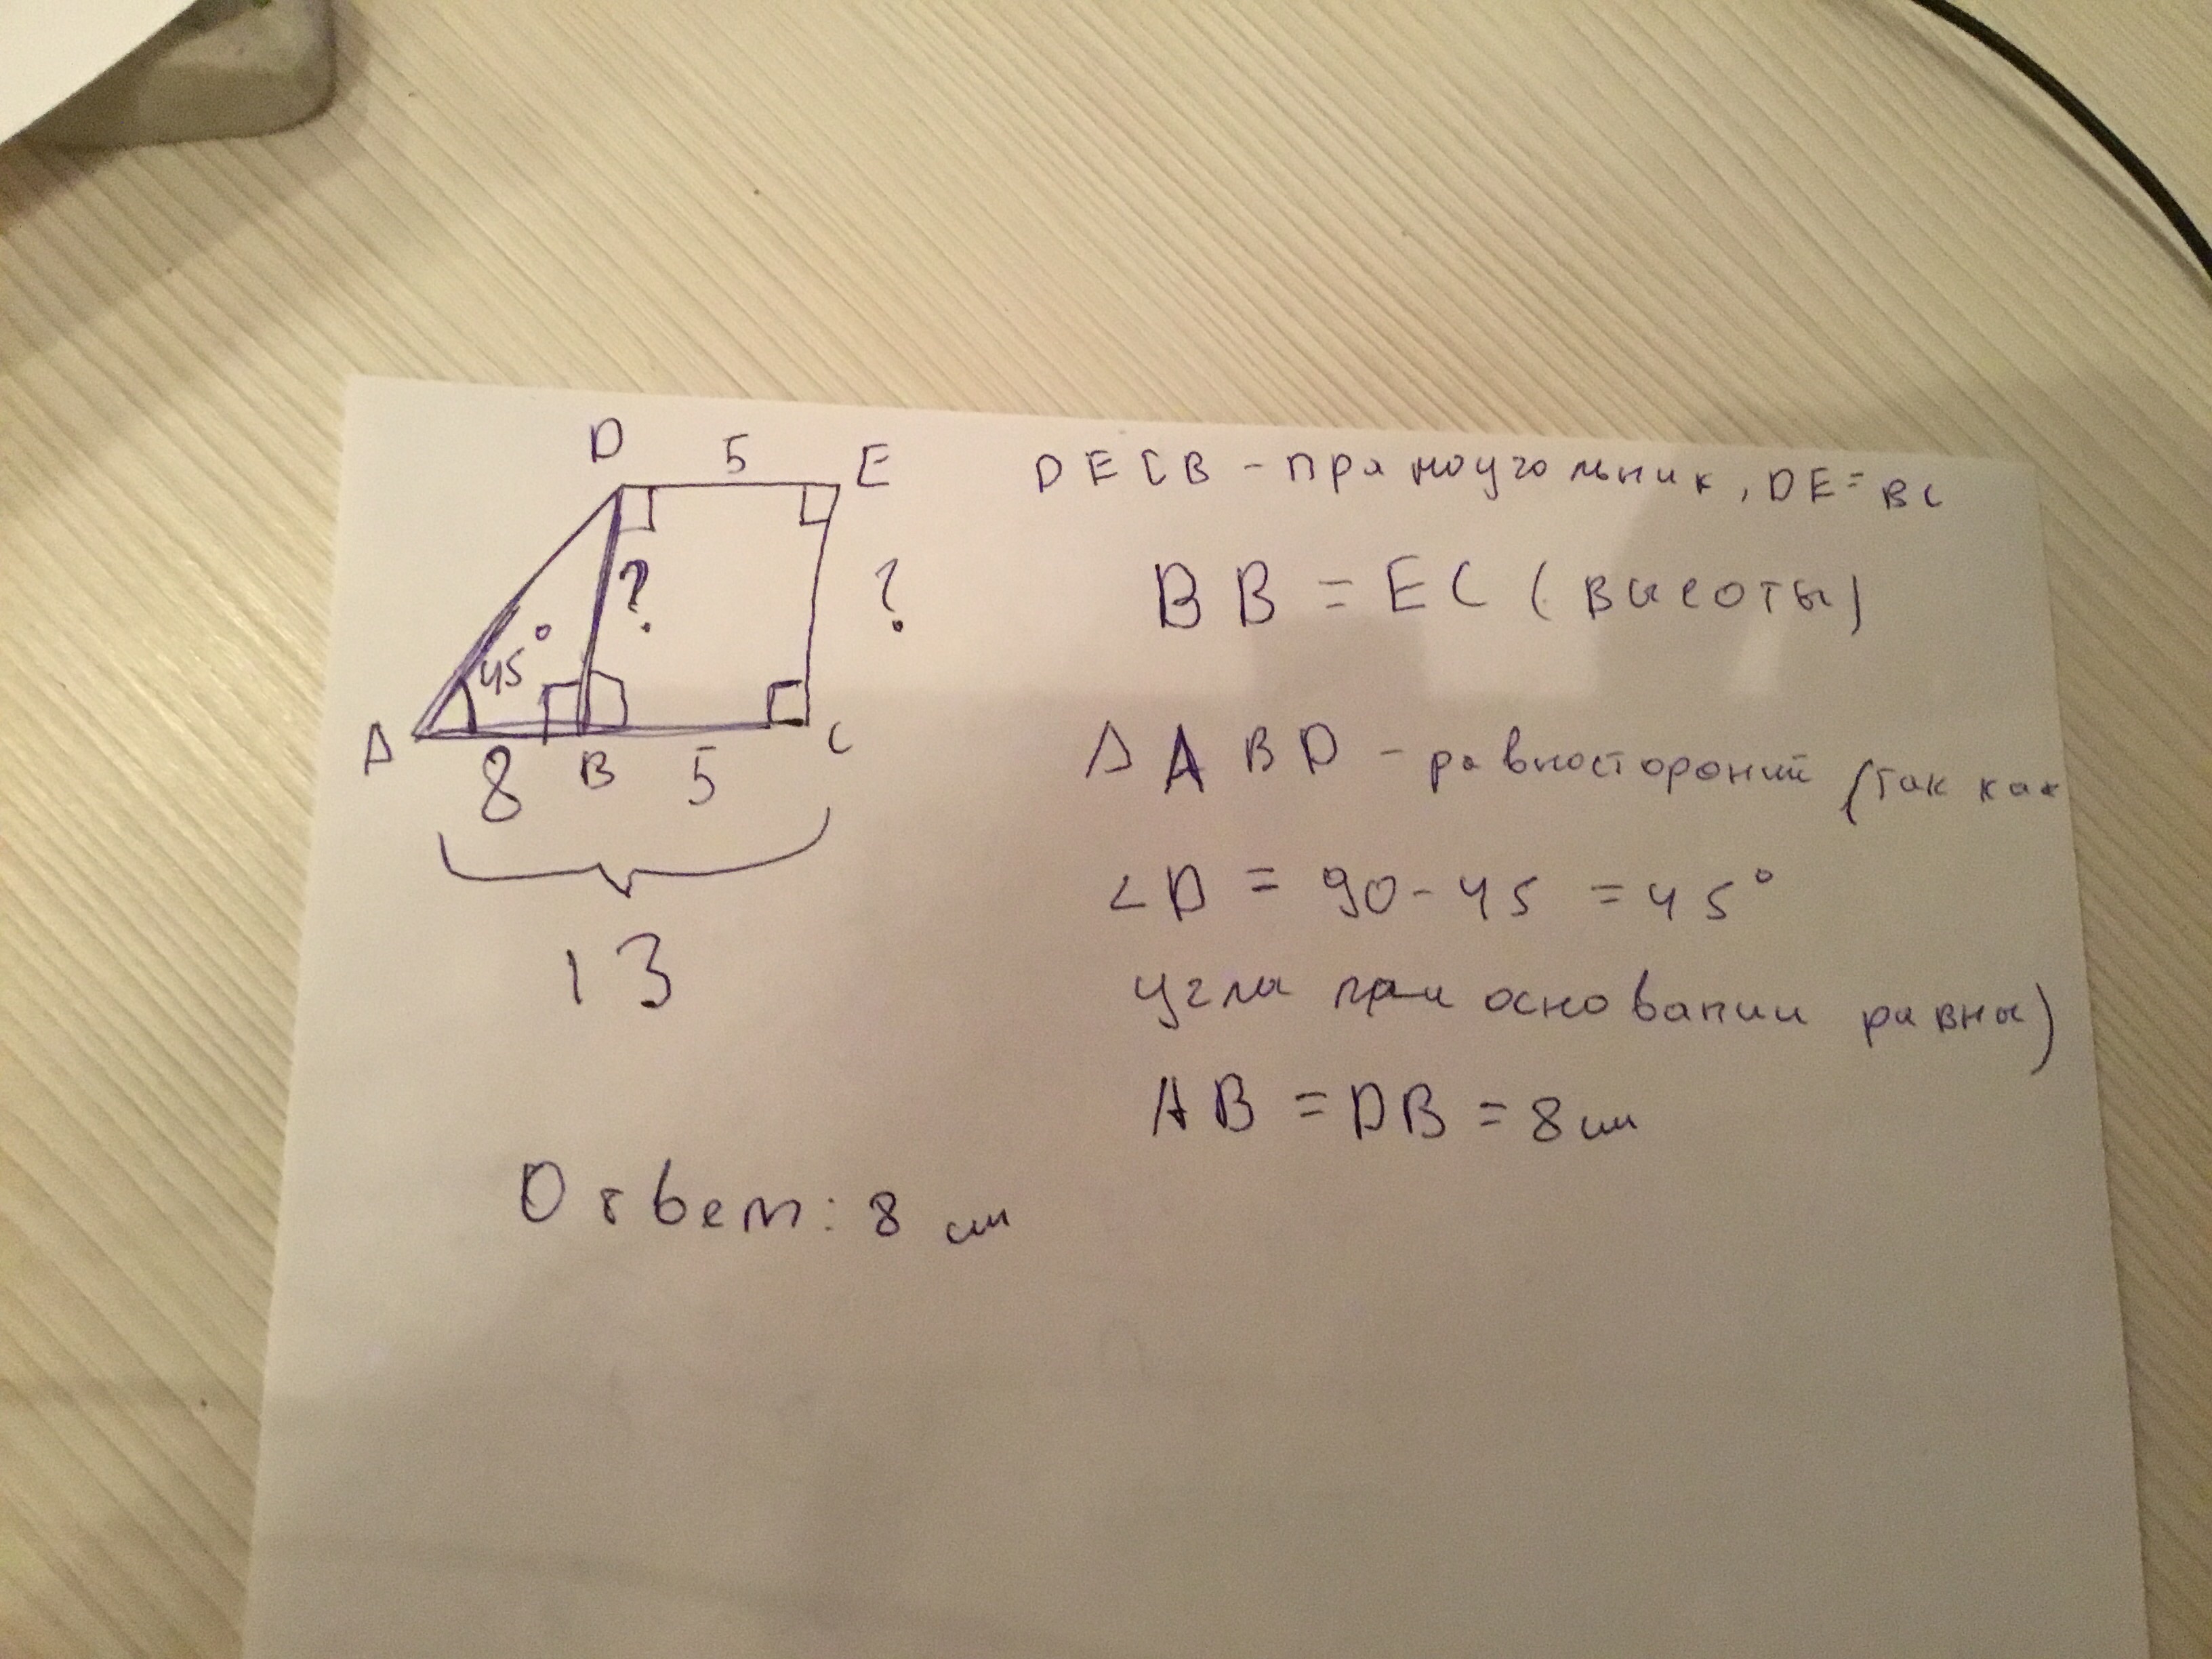 D 5 E
45° ? ?
A 8 B 5 C
13
DECB - прямоугольник, DE = BC
BB = EC (высоты)
Δ ABD - равностороний (так как
∠D = 90-45 = 45°
угла при основании равны)
AB = DB = 8 см
Ответ: 8 см